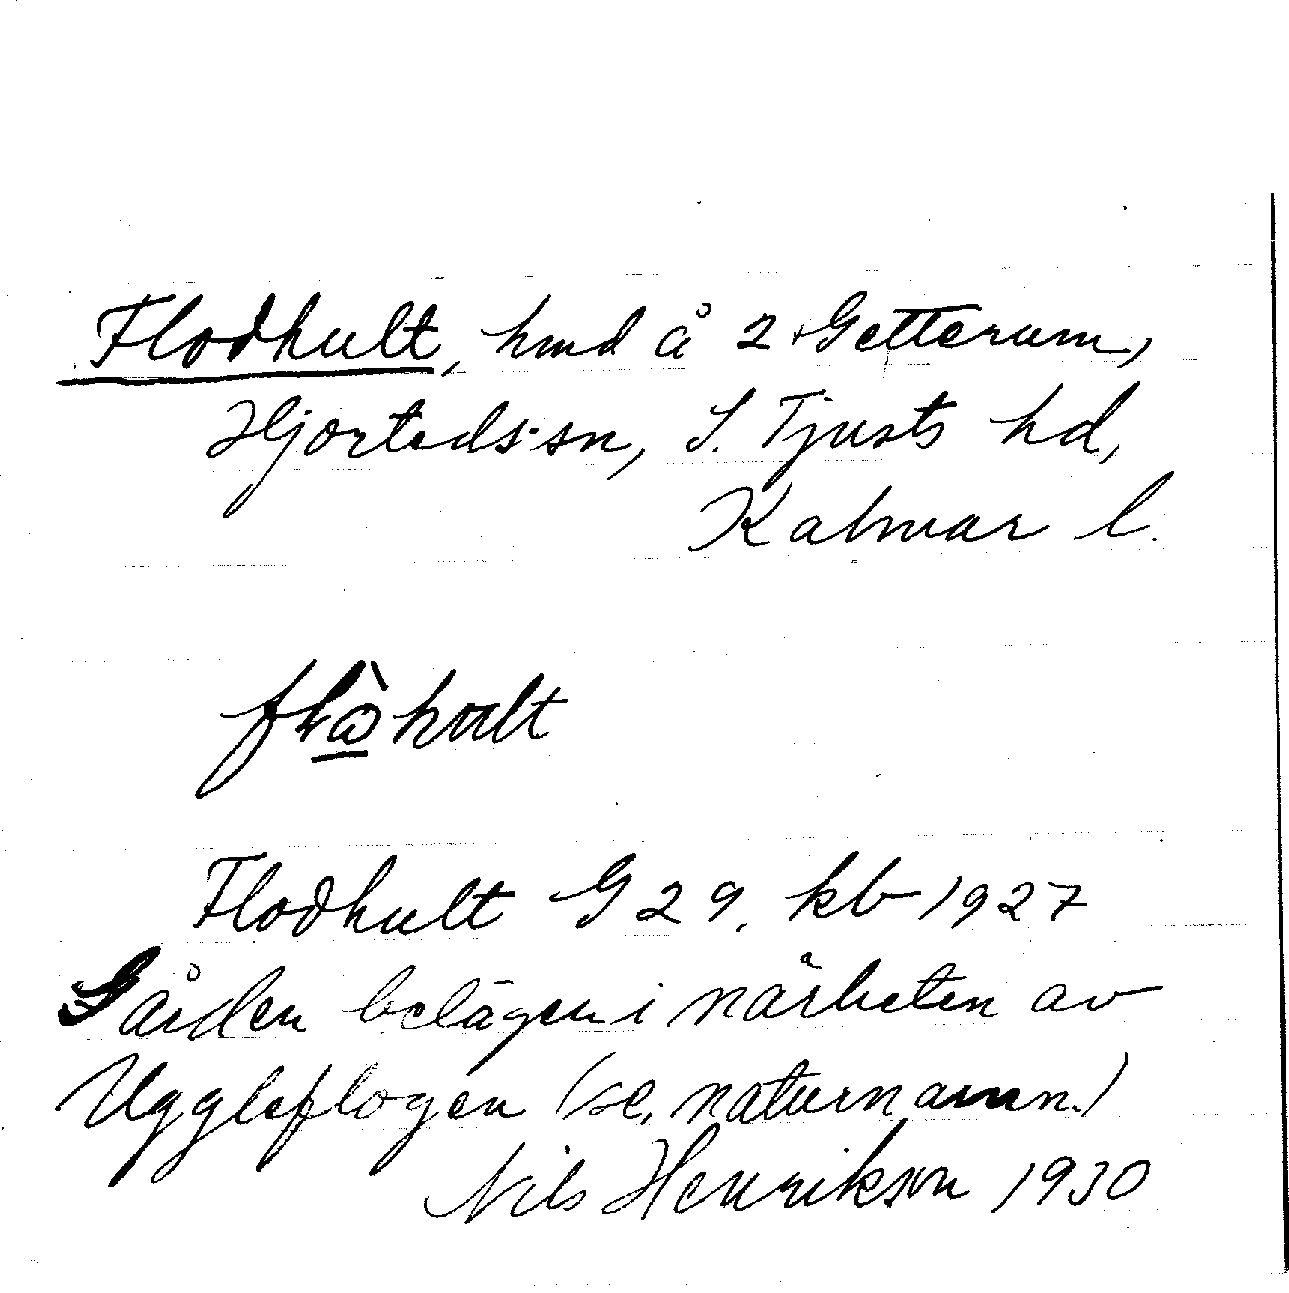 Flodhult, hmd å 2 Getterum,
Hjorteds sn, S. Tjusts hd,
Kalmar l.
Flodhult G 29. kb 1927
Gården belägen i närheten av
Uggleflogen (se, naturnamn.)
Nils Henrikson 1930